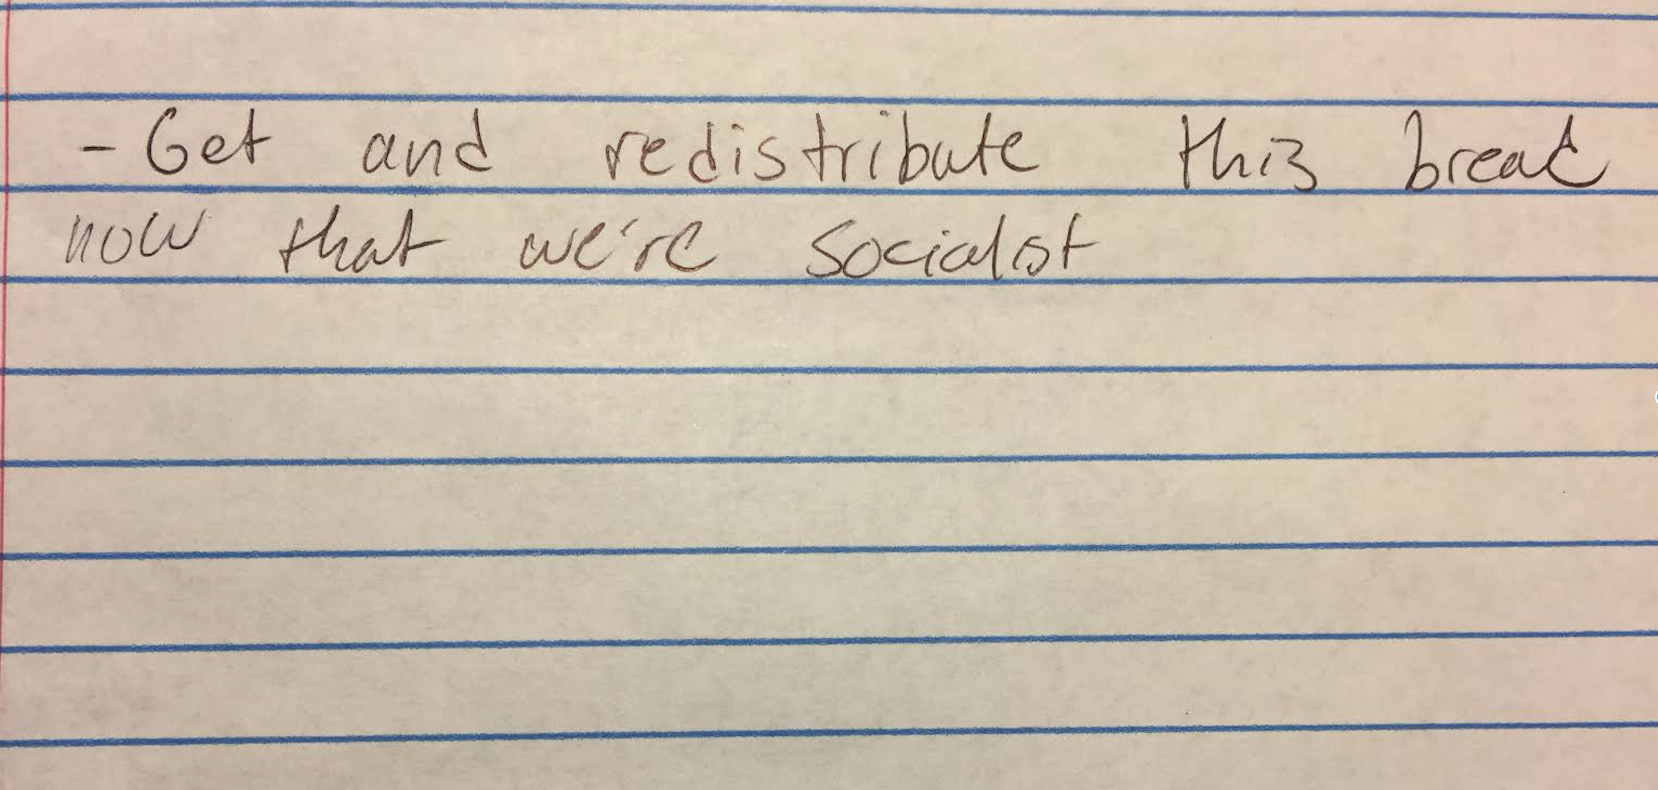 - Get and redistribute this bread
now that we're socialist